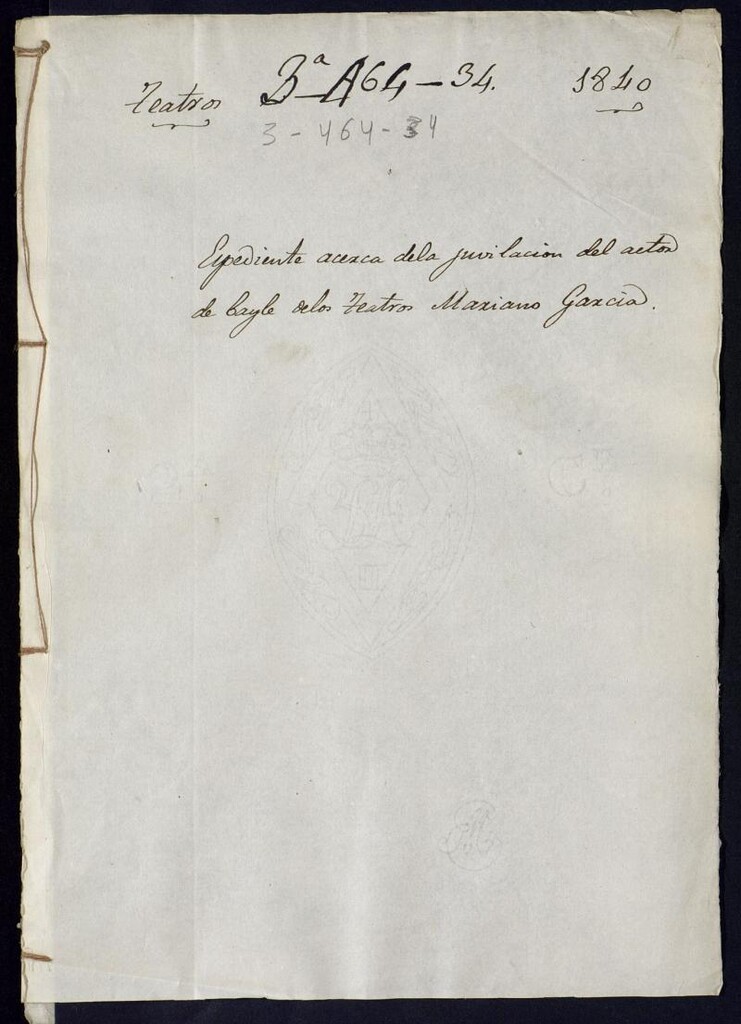 Teatros 3ª-464-34. 1840
3-464-34
Espediente acerca dela juvilacion del actor
de bayle delos Teatros Mariano Garcia.